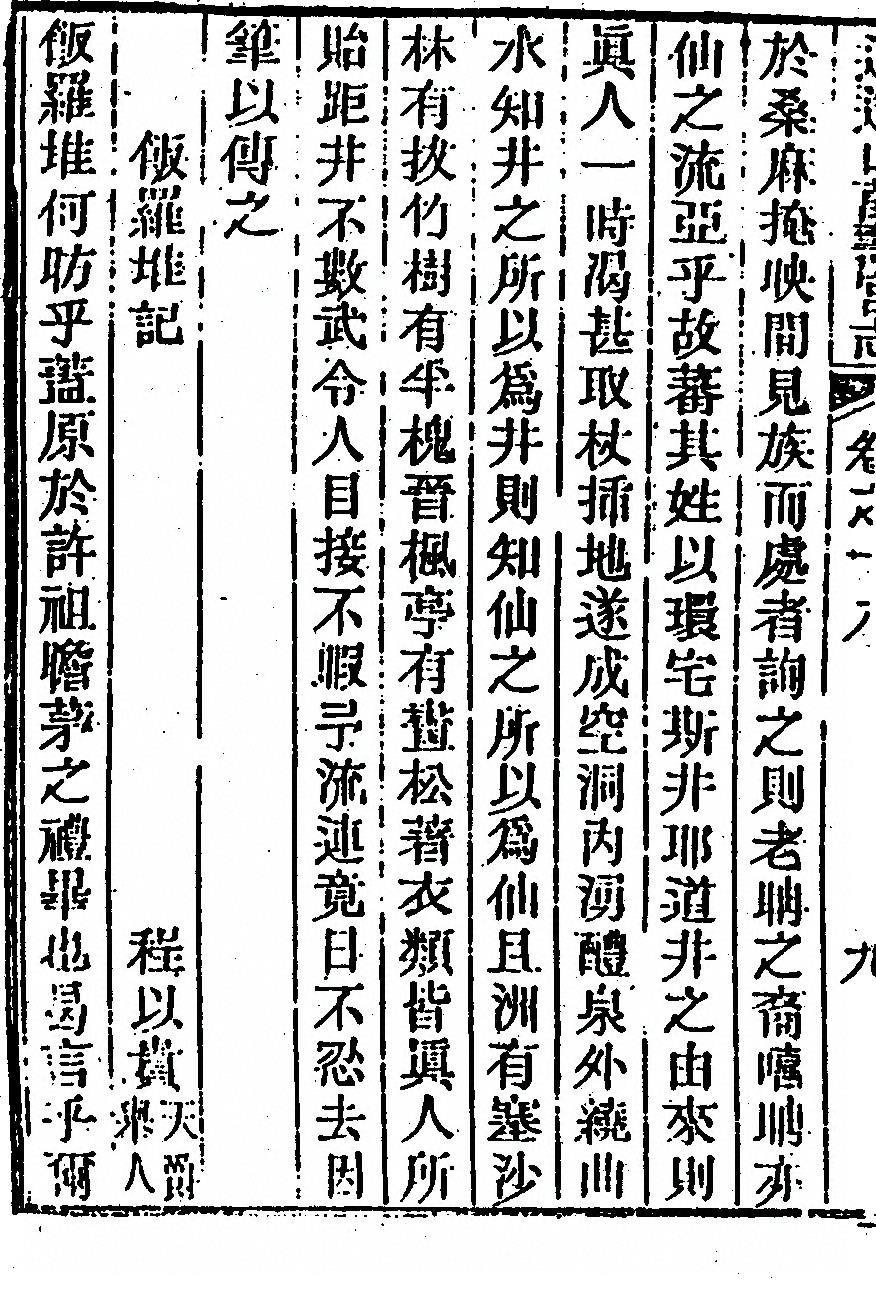 逍遥山萬壽宮志 卷十八 九
於桑麻掩映間見族而處者詢之則老聃之裔嘻聃亦
仙之流亞乎故蕃其姓以環宅斯井耶道井之由來則
眞人一時渴甚取杖揷地遂成空洞内湧醴泉外繞曲
水知井之所以爲井則知仙之所以爲仙且洲有塞沙
林有扳竹樹有半槐晉楓亭有蓋松著衣類皆眞人所
貽距井不數武令人目接不暇予流連竟日不忍去因
筆以傳之
飯羅堆記
程以貴 天爵 舉人
飯羅堆何昉乎葢原於許祖瞻茅之禮畢也曷言乎爾